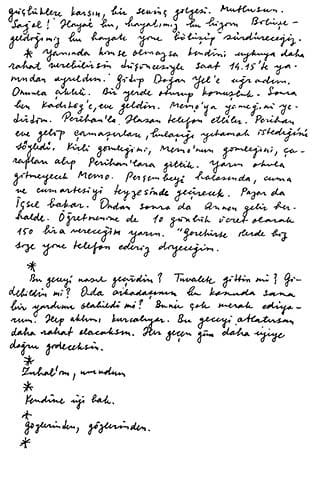 güçlüklere karşın, bir sevinç gölgesi. Mutlusun.
Sağol! Hayat bu, hayatımız bu bizim. Birlikte
geldiğimiz bu hayatı yine birlikte sürdüreceğiz.
* Yanında kimse olmazsa kendini uykuya daha
rahat verebilirsin düşüncesiyle saat 14.15'te ya-
nından ayrıldım. Gidip Doğan Yel'e uğradım.
Onunla çıktık. Bir yerde oturup konuştuk. Sonra
ben Kadıköy'e, eve geldim. Memo'ya yemeğini ye-
dirdim. Perihan'la Hasan telefon ettiler. Perihan
eve gelip çamaşırları, bulaşığı yıkamak istediğini
söyledi. Kirli gömleğimi, Memo'nun gömleğini, ço-
rapları alıp Perihan'lara gittik. Yarın okula
gitmeyecek Memo. Perşembeyi halasında, cuma
ve cumartesiyi teyzesinde geçirecek. Pazar da
İçsel bakar. Ondan sonra da Annen gelir her-
halde. Öğretmenine de 10 günlük ücret olarak
150 lira vereceğim yarın. "Gerekirse ilerde biz
size yine telefon ederiz" diyeceğim.
*
Bu geceyi nasıl geçirdin? Tuvalete gittin mi? Gi-
debildin mi? Oda arkadaşının bu konuda sana
bir yardımı olabildi mi? Bunu çok merak ediyo-
rum. Hep aklımı kurcalıyor. Bu geceyi atlatırsan
daha rahat olacaksın. Her geçen gün daha iyiye
doğru gideceksin.
*
Zuhal'ım, umudum
*
Kendine iyi bak.
*
Gözlerinden, gözlerinden.
*